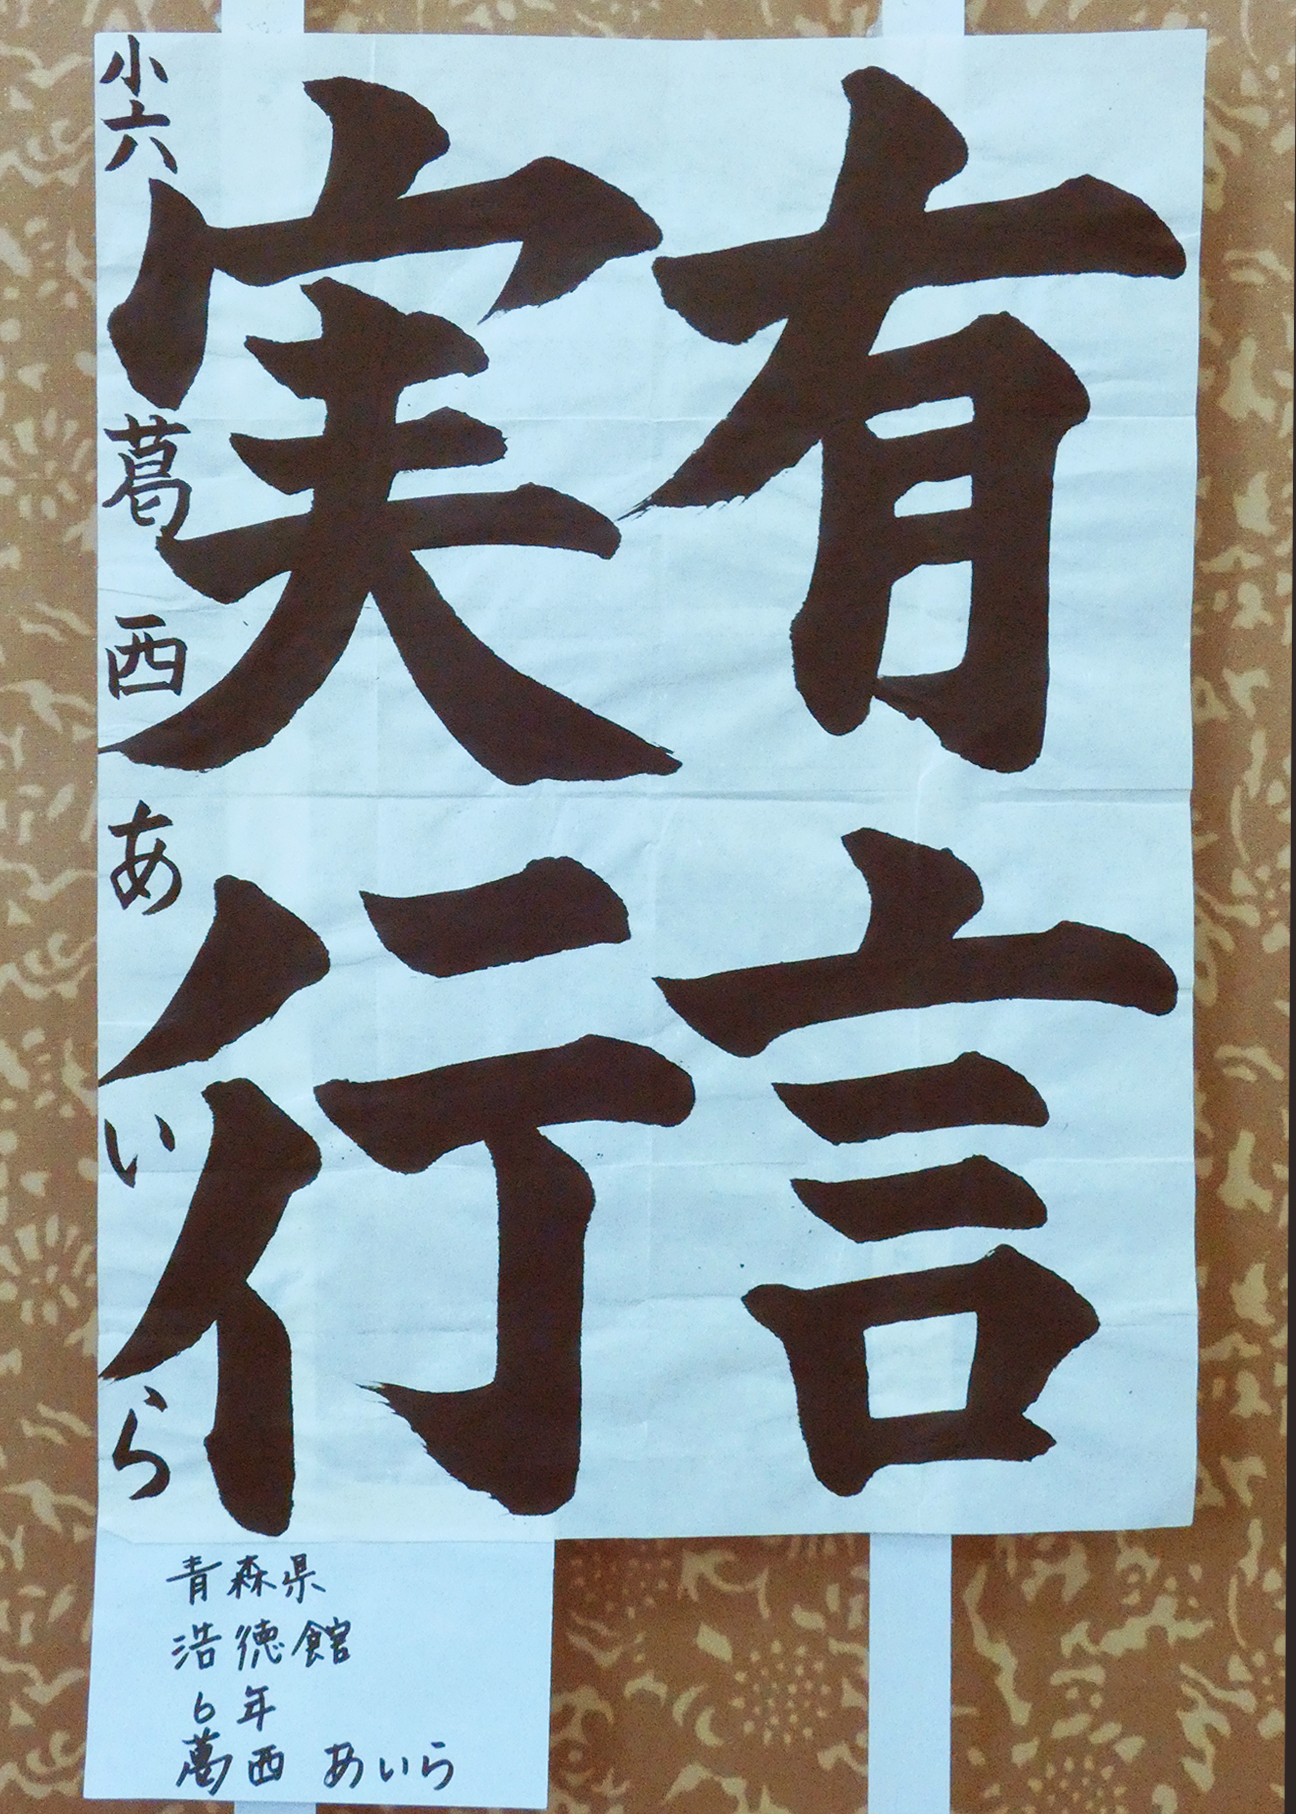 有言
実行
小六 葛西あいら
青森県
浩徳館
6年
葛西 あいら